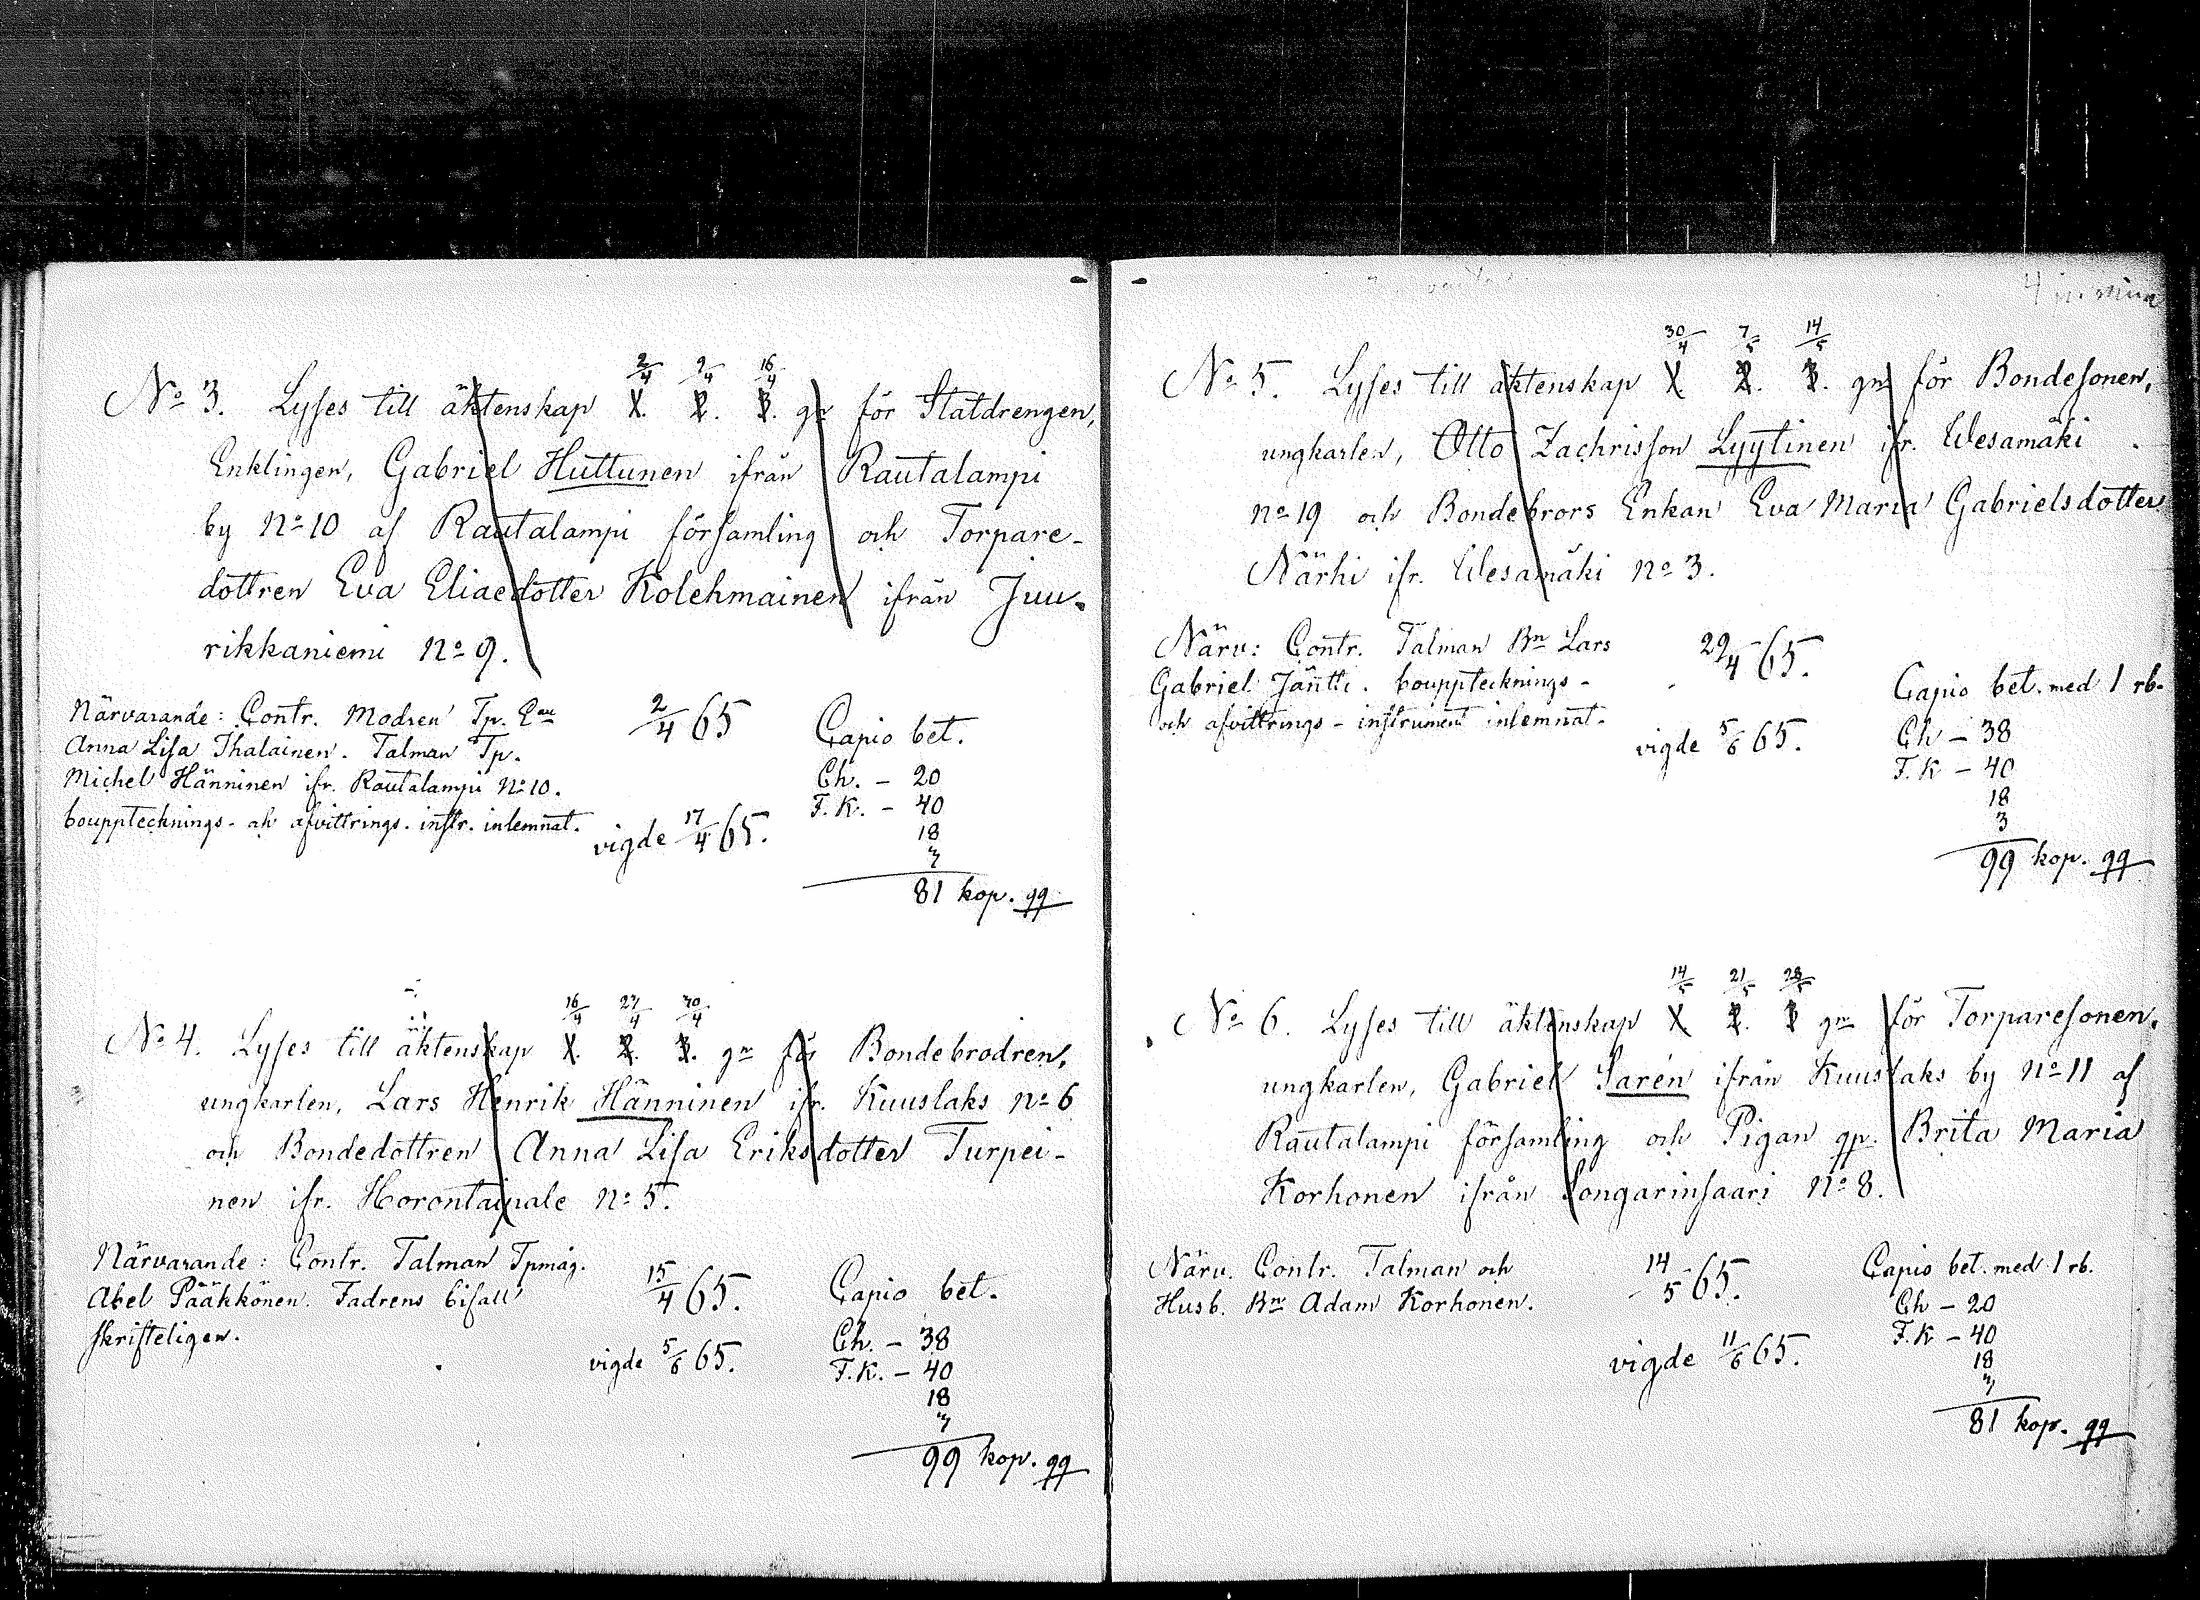 2/4 9/4 16/4
No 3. Lyses till äktenskap 1. 2. 3. gn för Statdrengen,
Enklingen, Gabriel Huttunen ifrån Rautalampi
by No 10 af Rautalampi församling och Torpare-
dottren Eva Eliaedotter Kolehmainen ifrån Juu-
rikkaniemi No 9.
Närvarande: Contr. Modren Tp. Eau
Anna Lisa Ihalainen. Talman Tp.
Michel Hänninen ifr. Rautalampi No 10.
bouppteckings- och afvittrings. instr. inlemnat.
2/4 65
vigde 17/4 65.
Capio bet.
Ch. - 20
F.K. - 40
18
3
81 kop. gg
16/4 23/4 30/4
No 4. Lyses till äktenskap 1. 2. 3. gn för Bondebrodren,
ungkarlen, Lars Henrik Hänninen ifr. Kuuslaks No 6
och Bondedottren Anna Lisa Eriksdotter Turpei-
nen ifr. Horontaipale No 5.
Närvarande: Contr. Talman Tpmåg.
Abel Pääkkönen. Fadrens bifall
skrifteligen.
15/4 65.
vigde 5/6 65.
Capio bet.
Ch. - 38
F.K. - 40
18
3
99 kop. gg
30/4 7/5 14/5
No 5. Lyses till äktenskap 1. 2. 3. gn för Bondesonen,
ungkarlen, Otto Zachrisson Lyytinen ifr. Wesamäki
No 19 och Bondebrors Enkan Eva Maria Gabrielsdotter
Närhi ifr. Wesamäki No 3.
Närv: Contr. Talman Bn Lars
Gabriel Jäntti. bouppteckings-
och afvittrings - instrument inlemnat.
29/4 65.
vigde 5/6 65.
Capio bet. med 1 rb.
Ch - 38
F.K - 40
18
3
99 kop. gg
14/5 21/5 28/5
No 6. Lyses till äktenskap 1 2. 3 gn för Torparesonen,
ungkarlen, Gabriel Sarén ifrån Kuuslaks by No 11 af
Rautalampi församling och Pigan qp. Brita Maria
Korhonen ifrån Songarinsaari No 8.
Närv. Contr. Talman och
Husb. Bn Adam Korhonen.
14/5 65.
vigde 11/6 65.
Capio bet. med 1 rb.
Ch - 20
F.K - 40
18
3
81 kop. gg